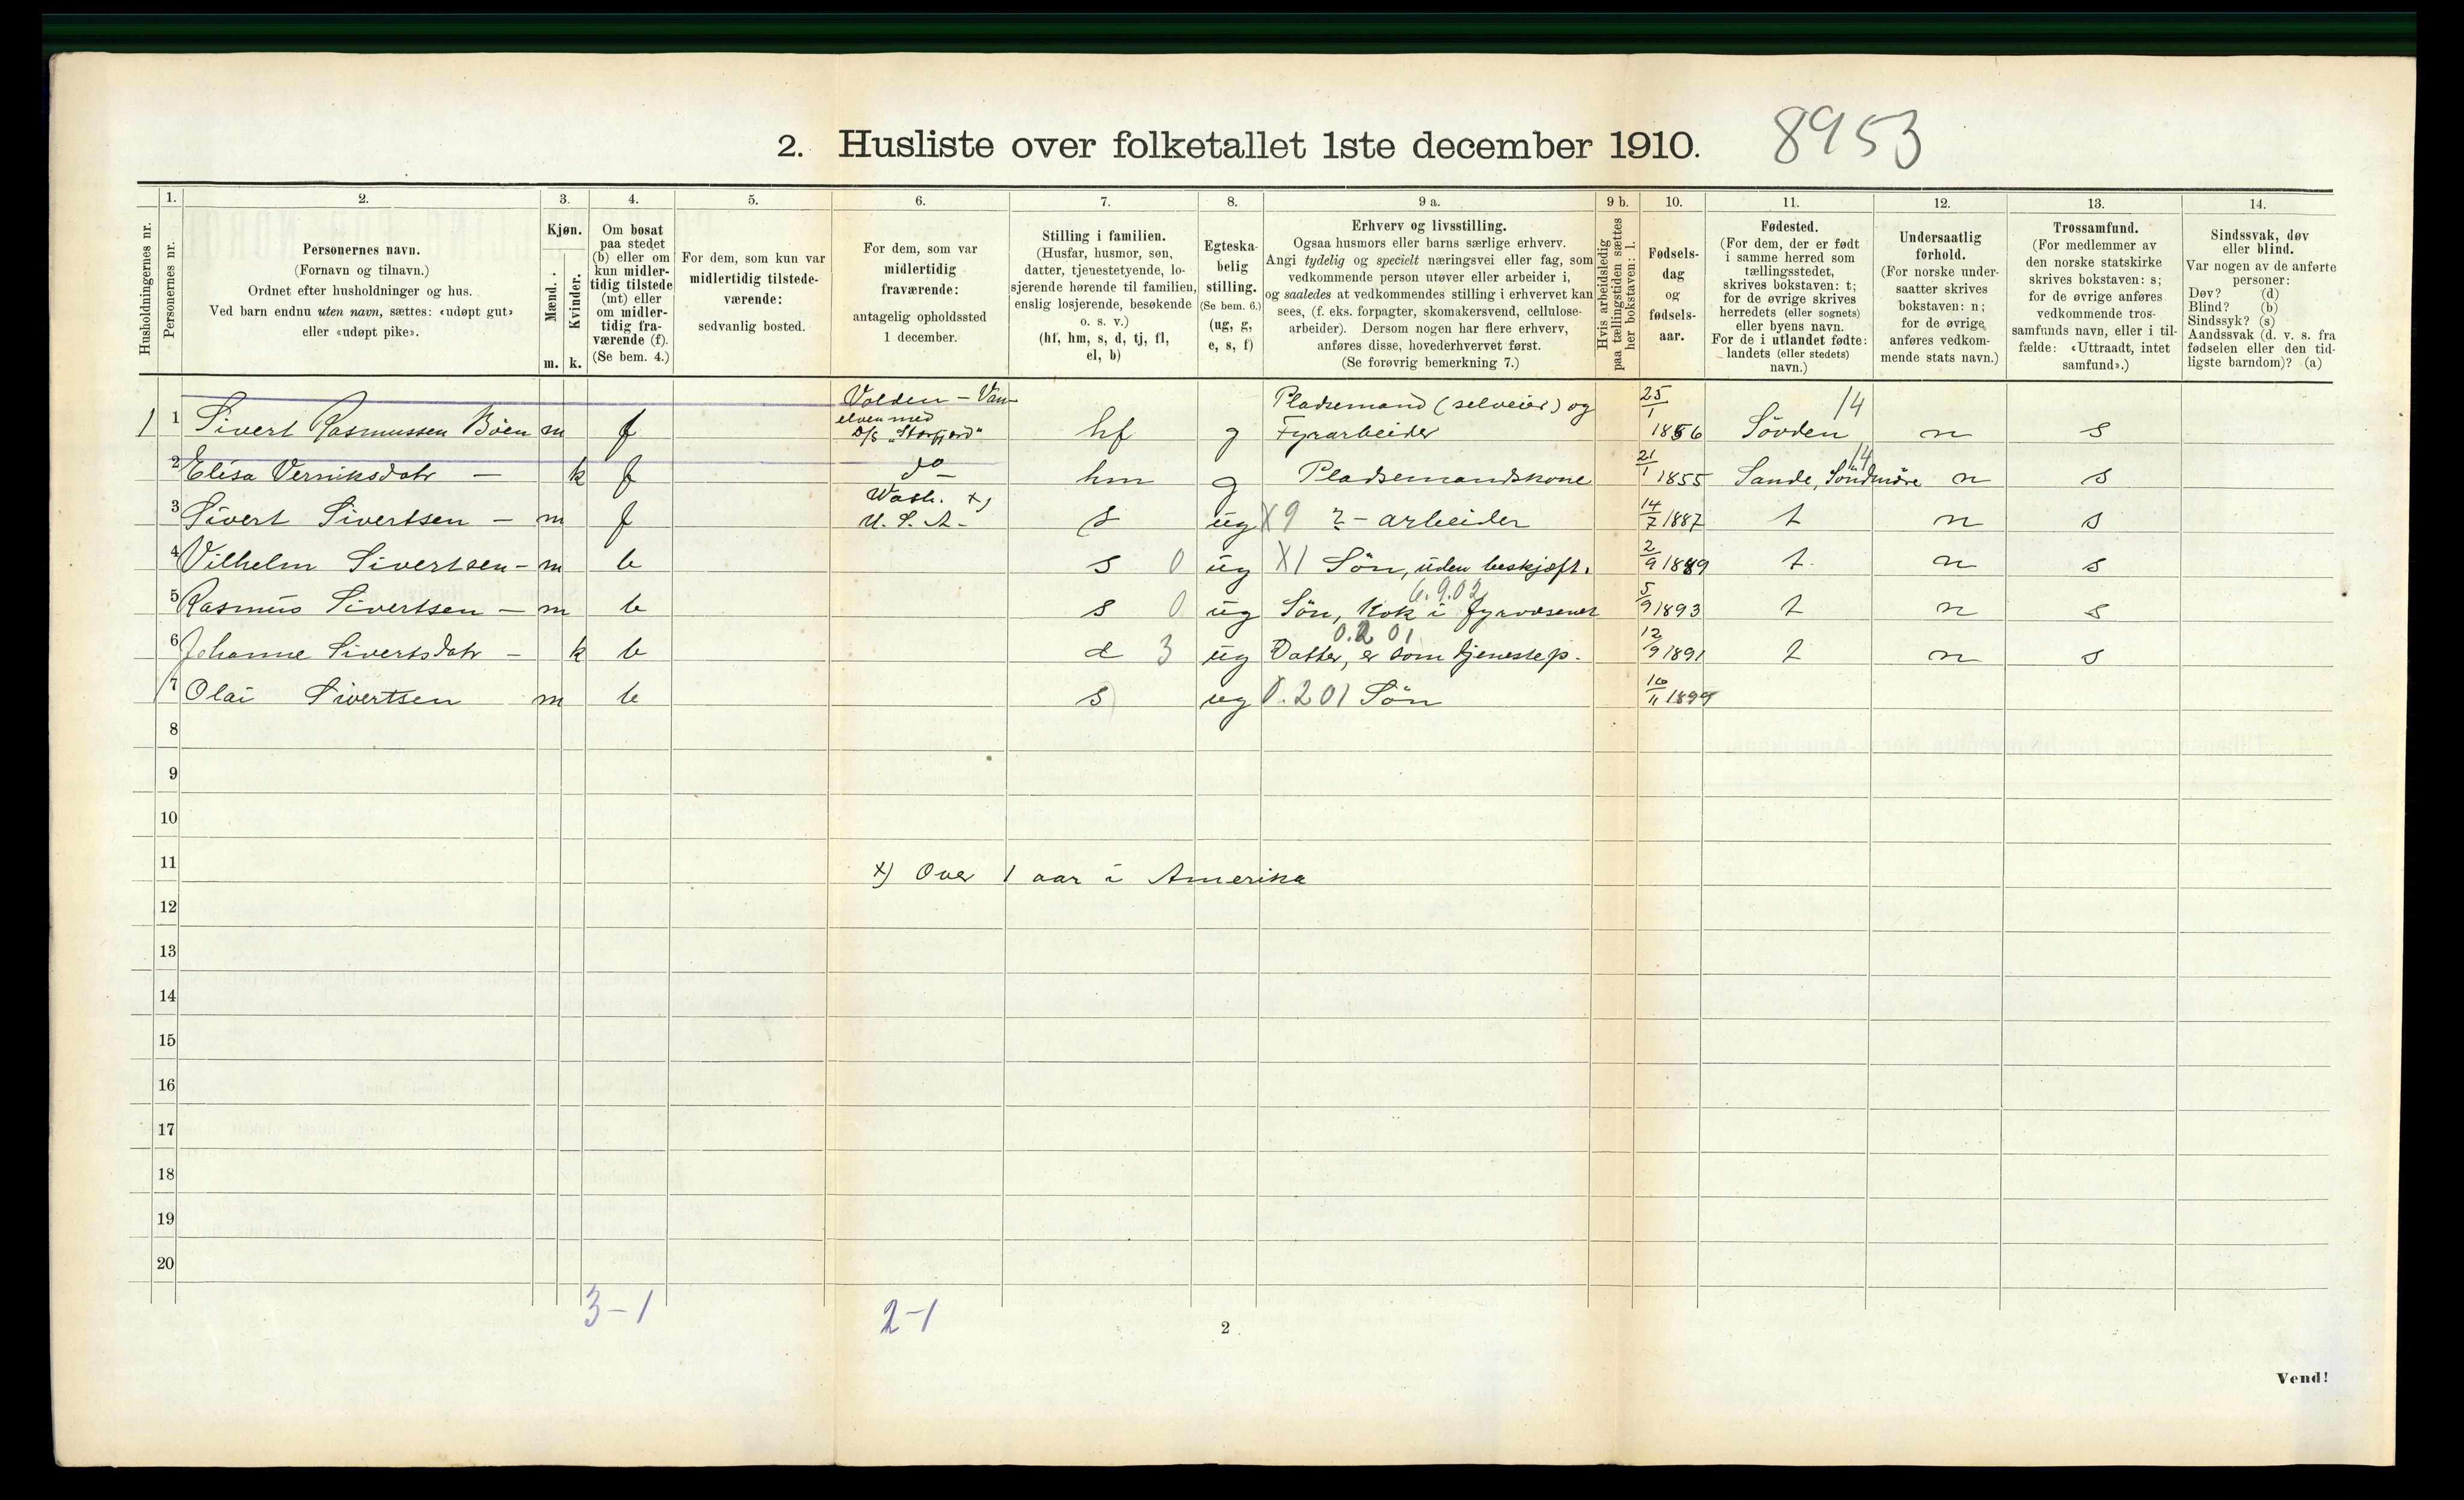 2. Husliste over folketallet 1ste december 1910. 8953
Husholdningernes nr.
1. Personernes nr.
2. Personernes navn.
(Fornavn og tilnavn.)
Ordnet efter husholdninger og hus.
Ved barn endnu uten navn, sættes: «udøpt gut»
eller «udøpt pike».
3. Kjøn.
Mænd. m.
Kvinder. k.
4. Om bosat
paa stedet
(b) eller om
kun midler-
tidig tilstede
(mt) eller
om midler-
tidig fra-
værende (f).
(Se bem. 4.)
5. For dem, som kun var
midlertidig tilstede-
værende:
sedvanlig bosted.
6. For dem, som var
midlertidig
fraværende:
antagelig opholdssted
1 december.
7. Stilling i familien.
(Husfar, husmor, søn,
datter, tjenestetyende, lo-
sjerende hørende til familien,
enslig losjerende, besøkende
o. s. v.)
(hf, hm, s, d, tj, fl,
el, b)
8. Egteska-
belig
stilling.
(Se bem. 6.)
(ug, g,
e, s, f)
9 a. Erhverv og livsstilling.
Ogsaa husmors eller barns særlige erhverv.
Angi tydelig og specielt næringsvei eller fag, som
vedkommende person utøver eller arbeider i,
og saaledes at vedkommendes stilling i erhvervet kan
sees, (f. eks. forpagter, skomakersvend, cellulose-
arbeider). Dersom nogen har flere erhverv,
anføres disse, hovederhvervet først.
(Se forøvrig bemerkning 7.)
9 b. Hvis arbeidsledig
paa tællingstiden sættes
her bokstaven: l.
10. Fødsels-
dag
og
fødsels-
aar.
11. Fødested.
(For dem, der er født
i samme herred som
tællingsstedet,
skrives bokstaven: t;
for de øvrige skrives
herredets (eller sognets)
eller byens navn.
For de i utlandet fødte:
landets (eller stedets)
navn.)
12. Undersaatlig
forhold.
(For norske under-
saatter skrives
bokstaven: n;
for de øvrige
anføres vedkom-
mende stats navn.)
13. Trossamfund.
(For medlemmer av
den norske statskirke
skrives bokstaven: s;
for de øvrige anføres
vedkommende tros-
samfunds navn, eller i til-
fælde: «Uttraadt, intet
samfund».)
14. Sindssvak, døv
eller blind.
Var nogen av de anførte
personer:
Døv? (d)
Blind? (b)
Sindssyk? (s)
Aandssvak (d. v. s. fra
fødselen eller den tid-
ligste barndom)? (a)
Volden - Van-
elven med
D/S "Storfjord"
Pladsemand (selveier) og
1 1 Sivert Rasmussen Böen m f hf g Fyrarbeider 25/1 1856 Sövden 14 n s
2 Elisa Verniksdatr - k f do - hm g Pladsemandskone 21/1 1855 Sande, Söndmöre 14 n s
3 Sivert Sivertsen - m f Wash. x) U. S. A. - s ug X9 ? - arbeider 14/7 1887 t n s
4 Vilhelm Sivertsen - m b s 0 ug X1 Sön, uden beskjæft. 2/9 1889 t. n s
5 Rasmus Sivertsen - m b s 0 ug Sön, Kok i fyrvæsenet 6.9.02 5/9 1893 t n s
6 Johanne Sivertsdatr - k b d 3 ug Datter, er som tjenestep. 0.2 01 12/9 1891 t n s
7 Olai Sivertsen m b s ug 0.2 01 Sön 16/11 1899
8
9
10
11
x) Over 1 aar i Amerika
12
13
14
15
16
17
18
19
20
3-1 2-1
2
Vend!